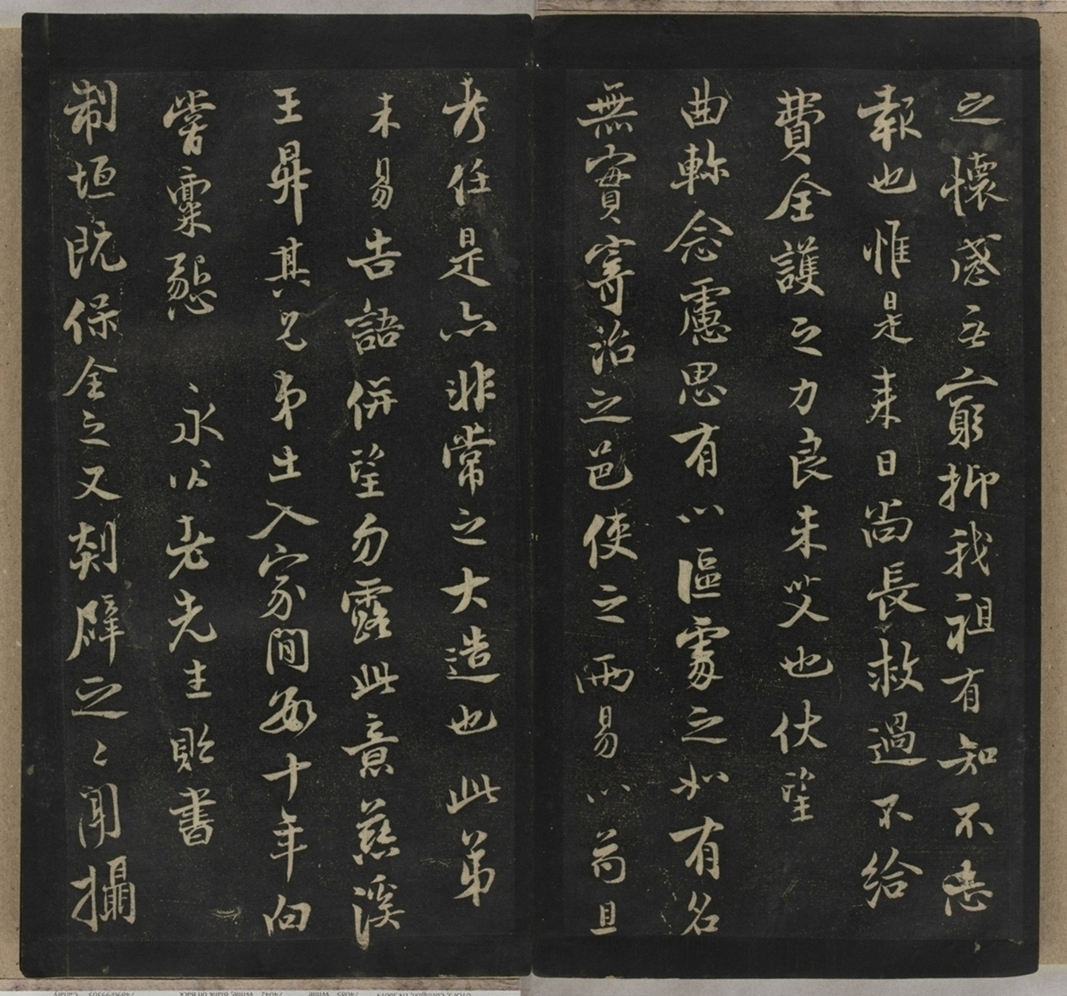 之懷感無窮抑我祖有知不忘
報也惟是來日尚長救過不給
費全護之力良未艾也伏望
曲軫念慮思有以區處之如有名
無實寄治之邑使之兩易以苟且
考任是亦非常之大造也此第
未易告語併望勿露此意慈溪
王昇其兄弟出入家間數十年向
嘗稟懇永公老先生貽書
制垣既保全之又刻辟之之聞攝